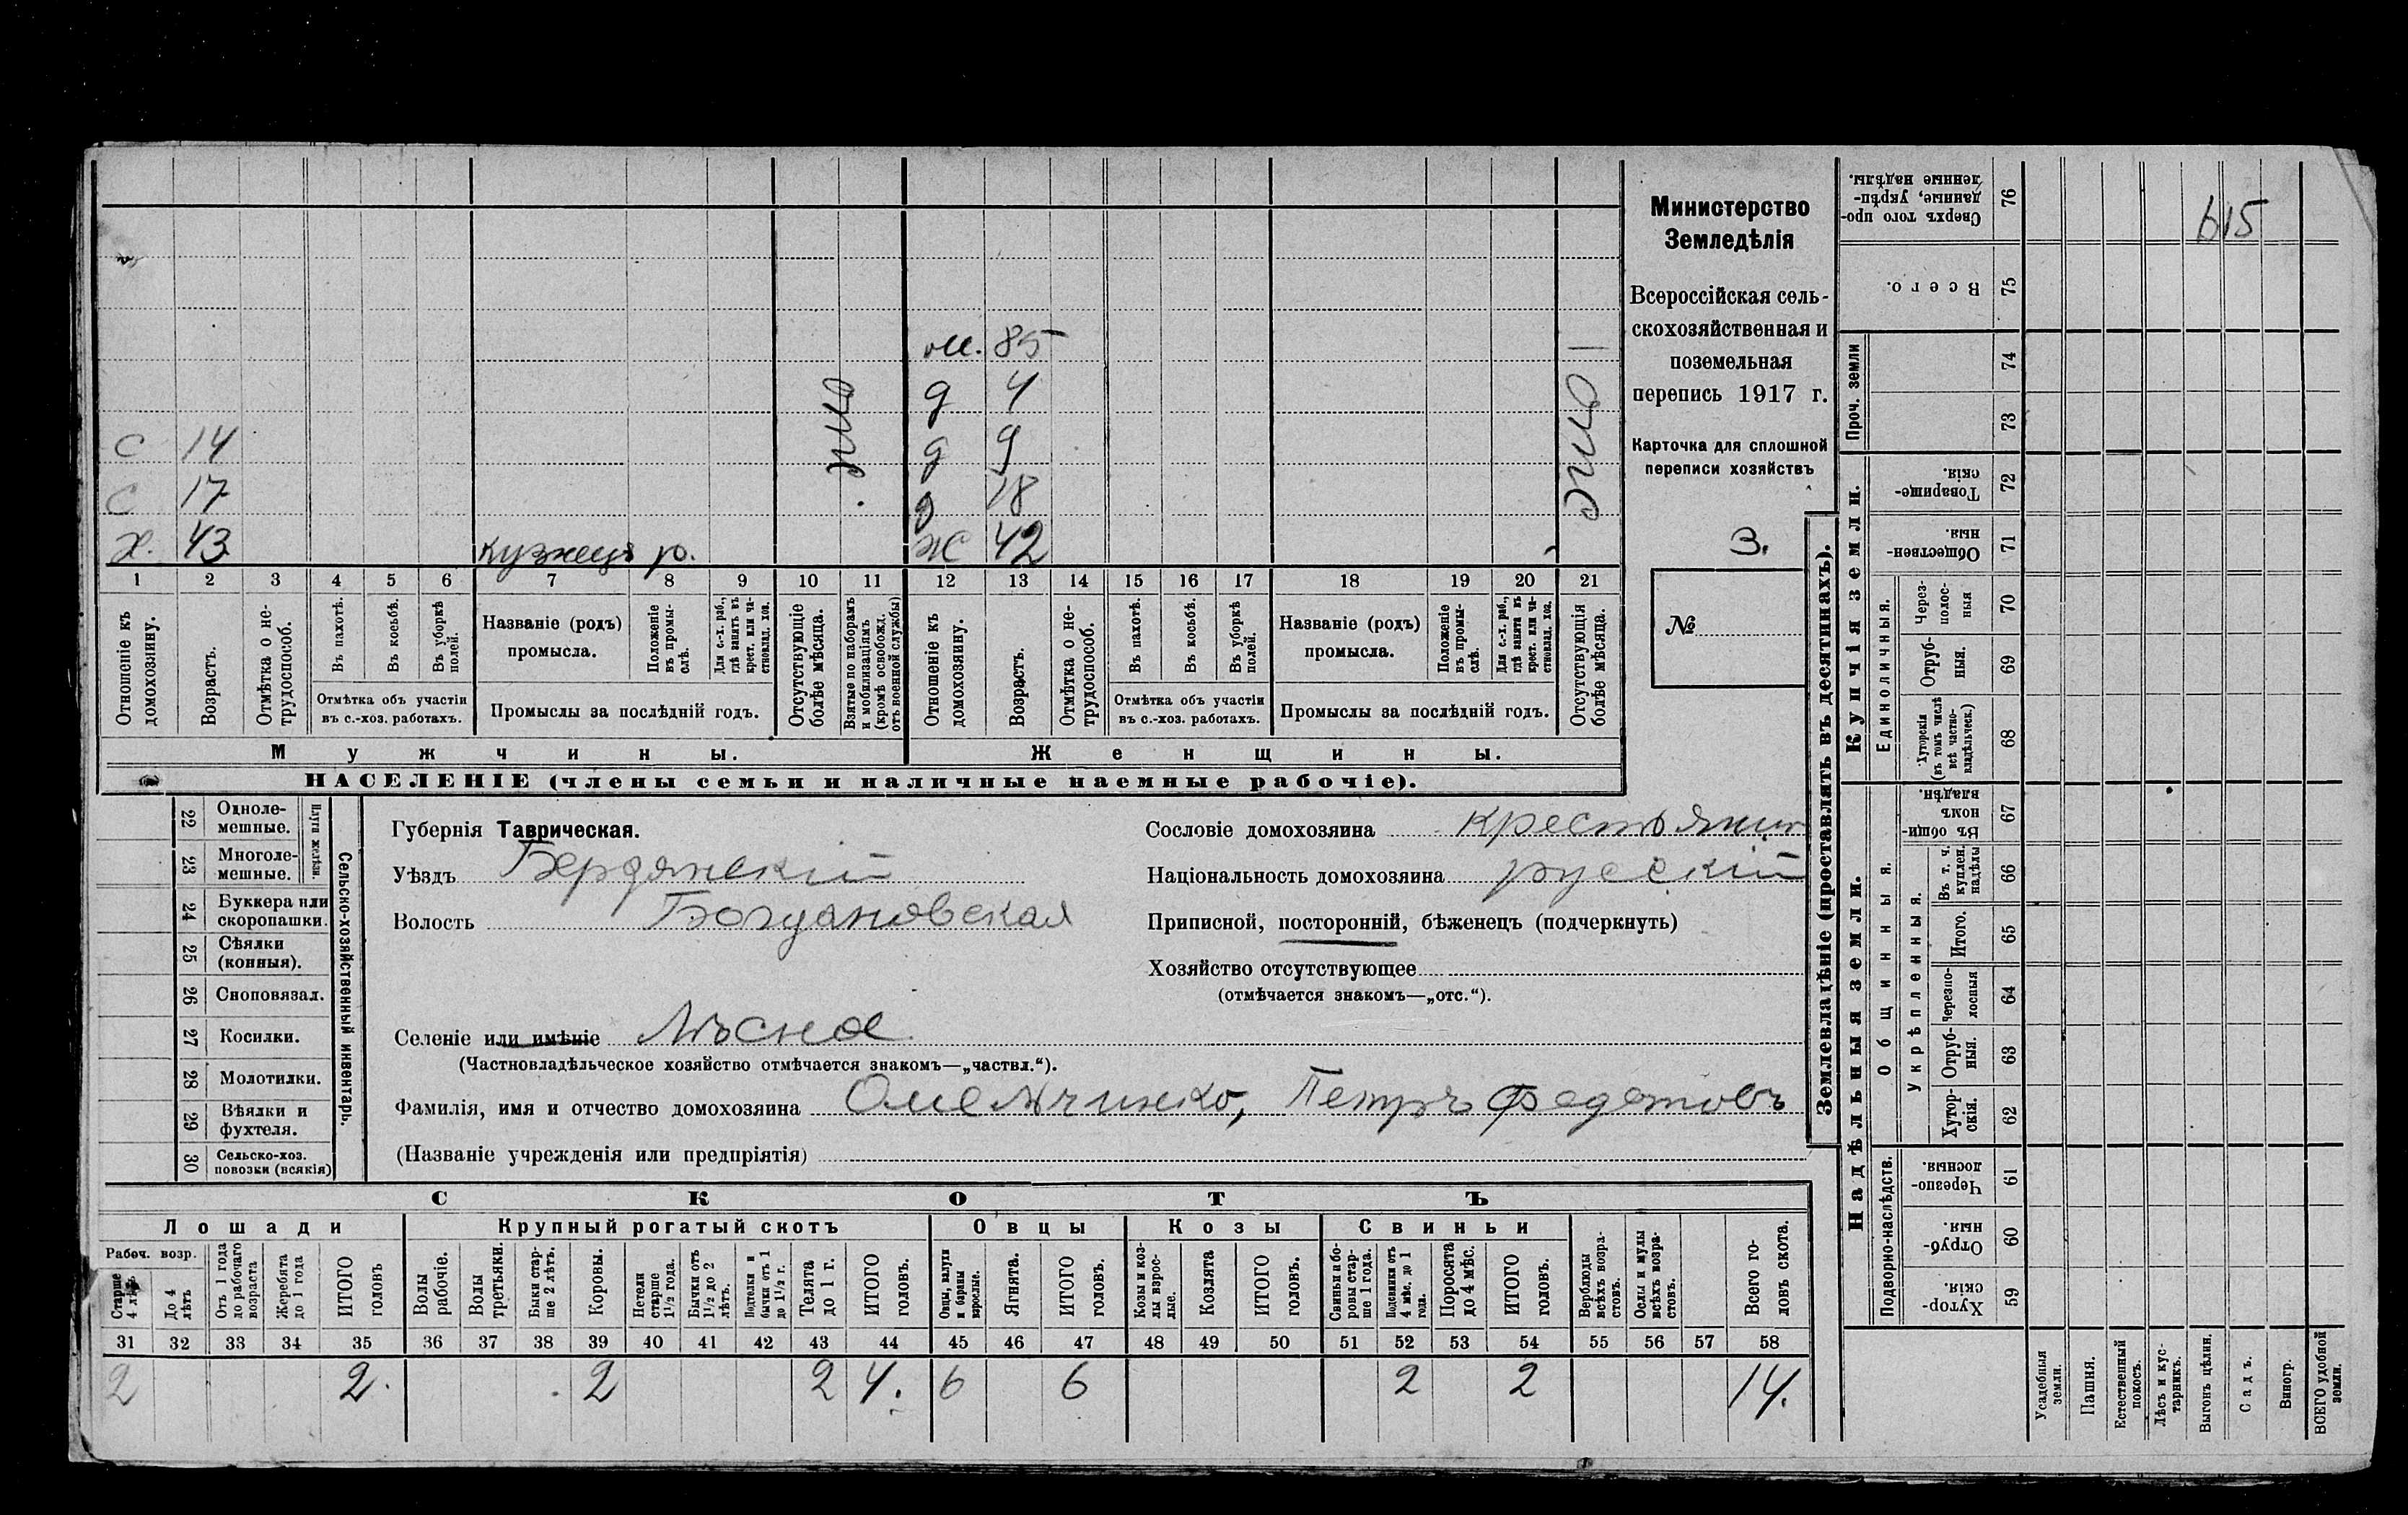 615
Министерство
Земледѣлія
Всероссійская сель-
скохозяйственная и
поземельная
перепись 1917 г.
Карточка для сплошной
переписи хозяйствъ
3.
№
м. 85
д 4
д 9
д 18
ж 42
с 14
с 17
х. 43 кузнецъ р.
1 2 3 4 5 6 7 8 9 10 11 12 13 14 15 16 17 18 19 20 21
Отношеніе къ домохозяину.
Возрастъ.
Отмѣтка о не-трудоспособ.
Въ пахотѣ.
Въ косьбѣ.
Въ уборкѣ полей.
Отмѣтка объ участіи
въ с.-хоз. работахъ.
Названіе (родъ)
промысла.
Положеніе въ промы-слѣ.
Для с.-х. раб., гдѣ занятъ въ крест. или ча-стновлад. хоз.
Промыслы за послѣдній годъ.
Отсутствующіе болѣе мѣсяца.
Взятые по наборамъ и мобилизаціямъ (кромѣ освобожд. отъ военной службы)
Отношеніе къ домохозяину.
Возрастъ.
Отмѣтка о не-трудоспособ.
Въ пахотѣ.
Въ косьбѣ.
Въ уборкѣ полей.
Отмѣтка объ участіи
въ с.-хоз. работахъ.
Названіе (родъ)
промысла.
Положеніе въ промы-слѣ.
Для с.-х. раб., гдѣ занята въ крест. или ча-стновлад. хоз.
Промыслы за послѣдній годъ.
Отсутствующія болѣе мѣсяца.
Мужчины.
Женщины.
НАСЕЛЕНІЕ (члены семьи и наличные наемные рабочіе).
22 Одноле-мешные.
23 Многоле-мешные.
Плуги желѣзн.
24 Буккера или скоропашки.
25 Сѣялки (конныя).
26 Сноповязал.
27 Косилки.
28 Молотилки.
29 Вѣялки и фухтеля.
30 Сельско-хоз. повозки (всякія)
Сельско-хозяйственный инвентарь.
Губернія Таврическая.
Уѣздъ Бердянскій
Волость Богдановская
Селеніе или имѣніе
(Частновладѣльческое хозяйство отмѣчается знакомъ—„частвл.“).
Фамилія, имя и отчество домохозяина Омельченко, Петръ Федотовъ
(Названіе учрежденія или предпріятія)
Сословіе домохозяина крестьянин
Національность домохозяина русскій
Приписной, посторонній, бѣженецъ (подчеркнуть)
Хозяйство отсутствующее
(отмѣчается знакомъ—„отс.“).
СКОТЪ
Лошади Крупный рогатый скотъ Овцы Козы Свиньи
Рабоч. возр.
Старше 4 лѣтъ
До 4 лѣтъ
Отъ 1 года до рабочаго возраста
Жеребята до 1 года
ИТОГО головъ
Волы рабочіе.
Волы третьяки.
Быки стар-ше 2 лѣтъ.
Коровы.
Нетели старше 1½ года.
Бычки отъ 1½ до 2 лѣтъ.
Подтелки и бычки отъ 1 до 1½ г.
Телята до 1 г.
ИТОГО головъ.
Овцы, валухи и бараны взрослые.
Ягнята.
ИТОГО головъ.
Козы и коз-лы взрос-лые.
Козлята
ИТОГО головъ.
Свиньи и бо-ровы стар-ше 1 года.
Подсвинки отъ 4 мѣс. до 1 года.
Поросята до 4 мѣс.
ИТОГО головъ.
Верблюды всѣхъ возра-стовъ.
Ослы и мулы всѣхъ возра-стовъ.
Всего го-ловъ скота.
31 32 33 34 35 36 37 38 39 40 41 42 43 44 45 46 47 48 49 50 51 52 53 54 55 56 57 58
2 2. 2 2 4. 6 6 2 2 14.
Землевладѣніе (проставлять въ десятинахъ).
Купчія земли.
Надѣльныя земли.
Сверхъ того про-данные, укрѣп-ленные надѣлы. 76
Всего. 75
Проч. земли
74
73
Товарище-скія. 72
Обществен-ныя 71
Единоличныя.
Через-полос-ныя 70
Отруб-ныя. 69
Хуторскія (въ томъ числѣ всѣ частно-владѣльческ.) 68
Общинныя.
Въ общи-номъ владѣн. 67
Укрѣпленныя.
Въ т. ч. куплен. надѣлы 66
Итого. 65
Черезпо-лосныя 64
Отруб-ныя. 63
Хутор-скія. 62
Подворно-наслѣдств.
Черезпо-лосныя. 61
Отруб-ныя. 60
Хутор-скія. 59
Усадебныя земли.
Пашня.
Естественный покосъ.
Лѣсъ и кус-тарникъ.
Выгонъ цѣлин.
Садъ.
Виногр.
ВСЕГО удобной земли.